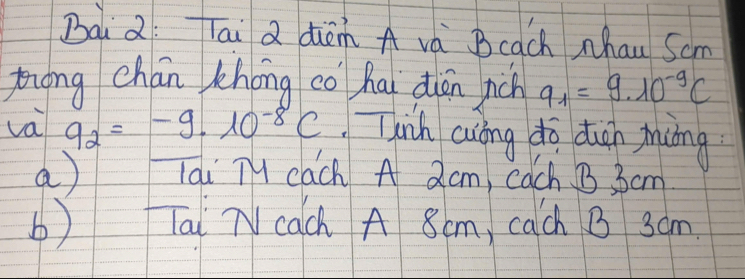 Bài 2: Tại 2 điểm A và B cách nhau 5cm
trong chân không có hai điện tích q₁ = 9.10⁻⁹C
và q₂ = -9.10⁻⁸C. Tính cường độ điện trường:
a) Tại M cách A 2cm, cách B 3cm.
b) Tại N cách A 8cm, cách B 3cm.